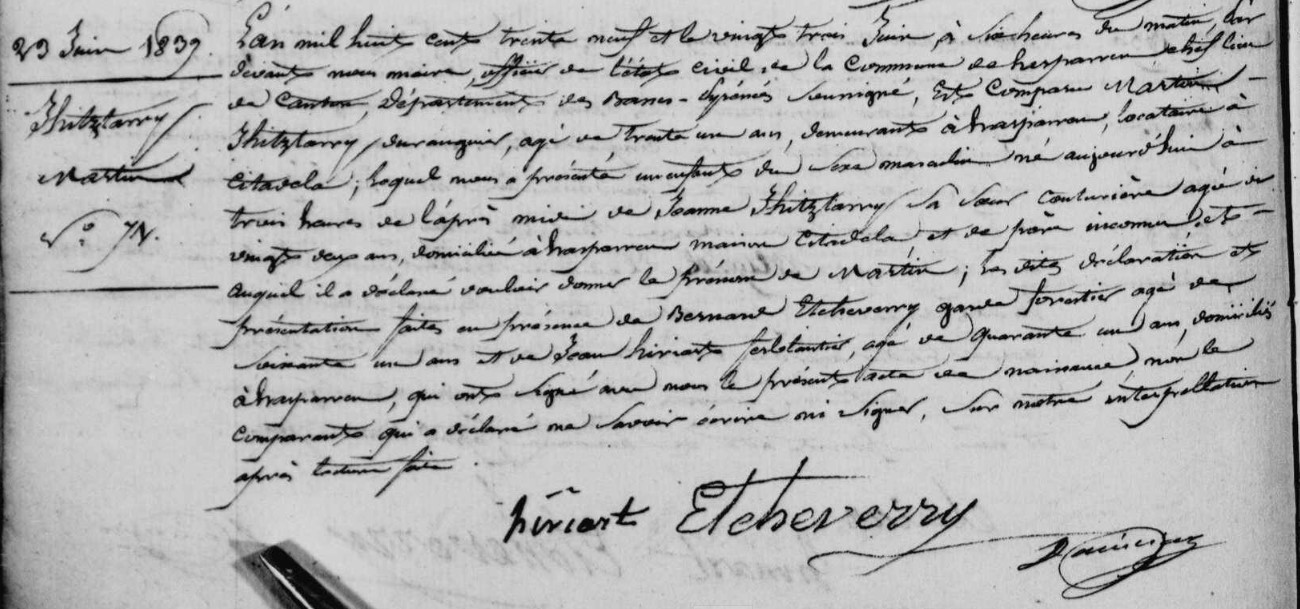 23 Juin 1839.
Hitztarry
Martin
N.° 74.
L'an mil huit cent trente neuf et le vingt trois Juin, à six heures du matin, par
devant nous maire, officier de l'état civil de la Commune de hasparren chef lieu
de Canton, Département des Basses-Pyrénées soussigné, Est Comparu Martin
Hitztarry, age de trente un ans, demeurant à hasparren, locataire à
Citadela; lequel nous a présenté un enfant du sexe masculin né aujourd'hui à
trois heures de l'après midi de Jeanne Hitztarry sa sœur couturière agée de
vingt deux ans, domiciliée à hasparren maison Citadela et de père inconnu, et
auquel il a déclaré vouloir donner le prénom de Martin; les dites déclaration et
présentation faites en présence de Bernard Etcheverry garde forestier agé de
soixante un ans et de Jean hiriart ferblantier, agé de quarante un ans, domiciliés
à hasparren, qui ont signé avec nous le présent acte de naissance, non le
comparant qui a déclaré ne savoir écrire ni signer, sur notre interpellation
après lecture faite.
hiriart Etcheverry